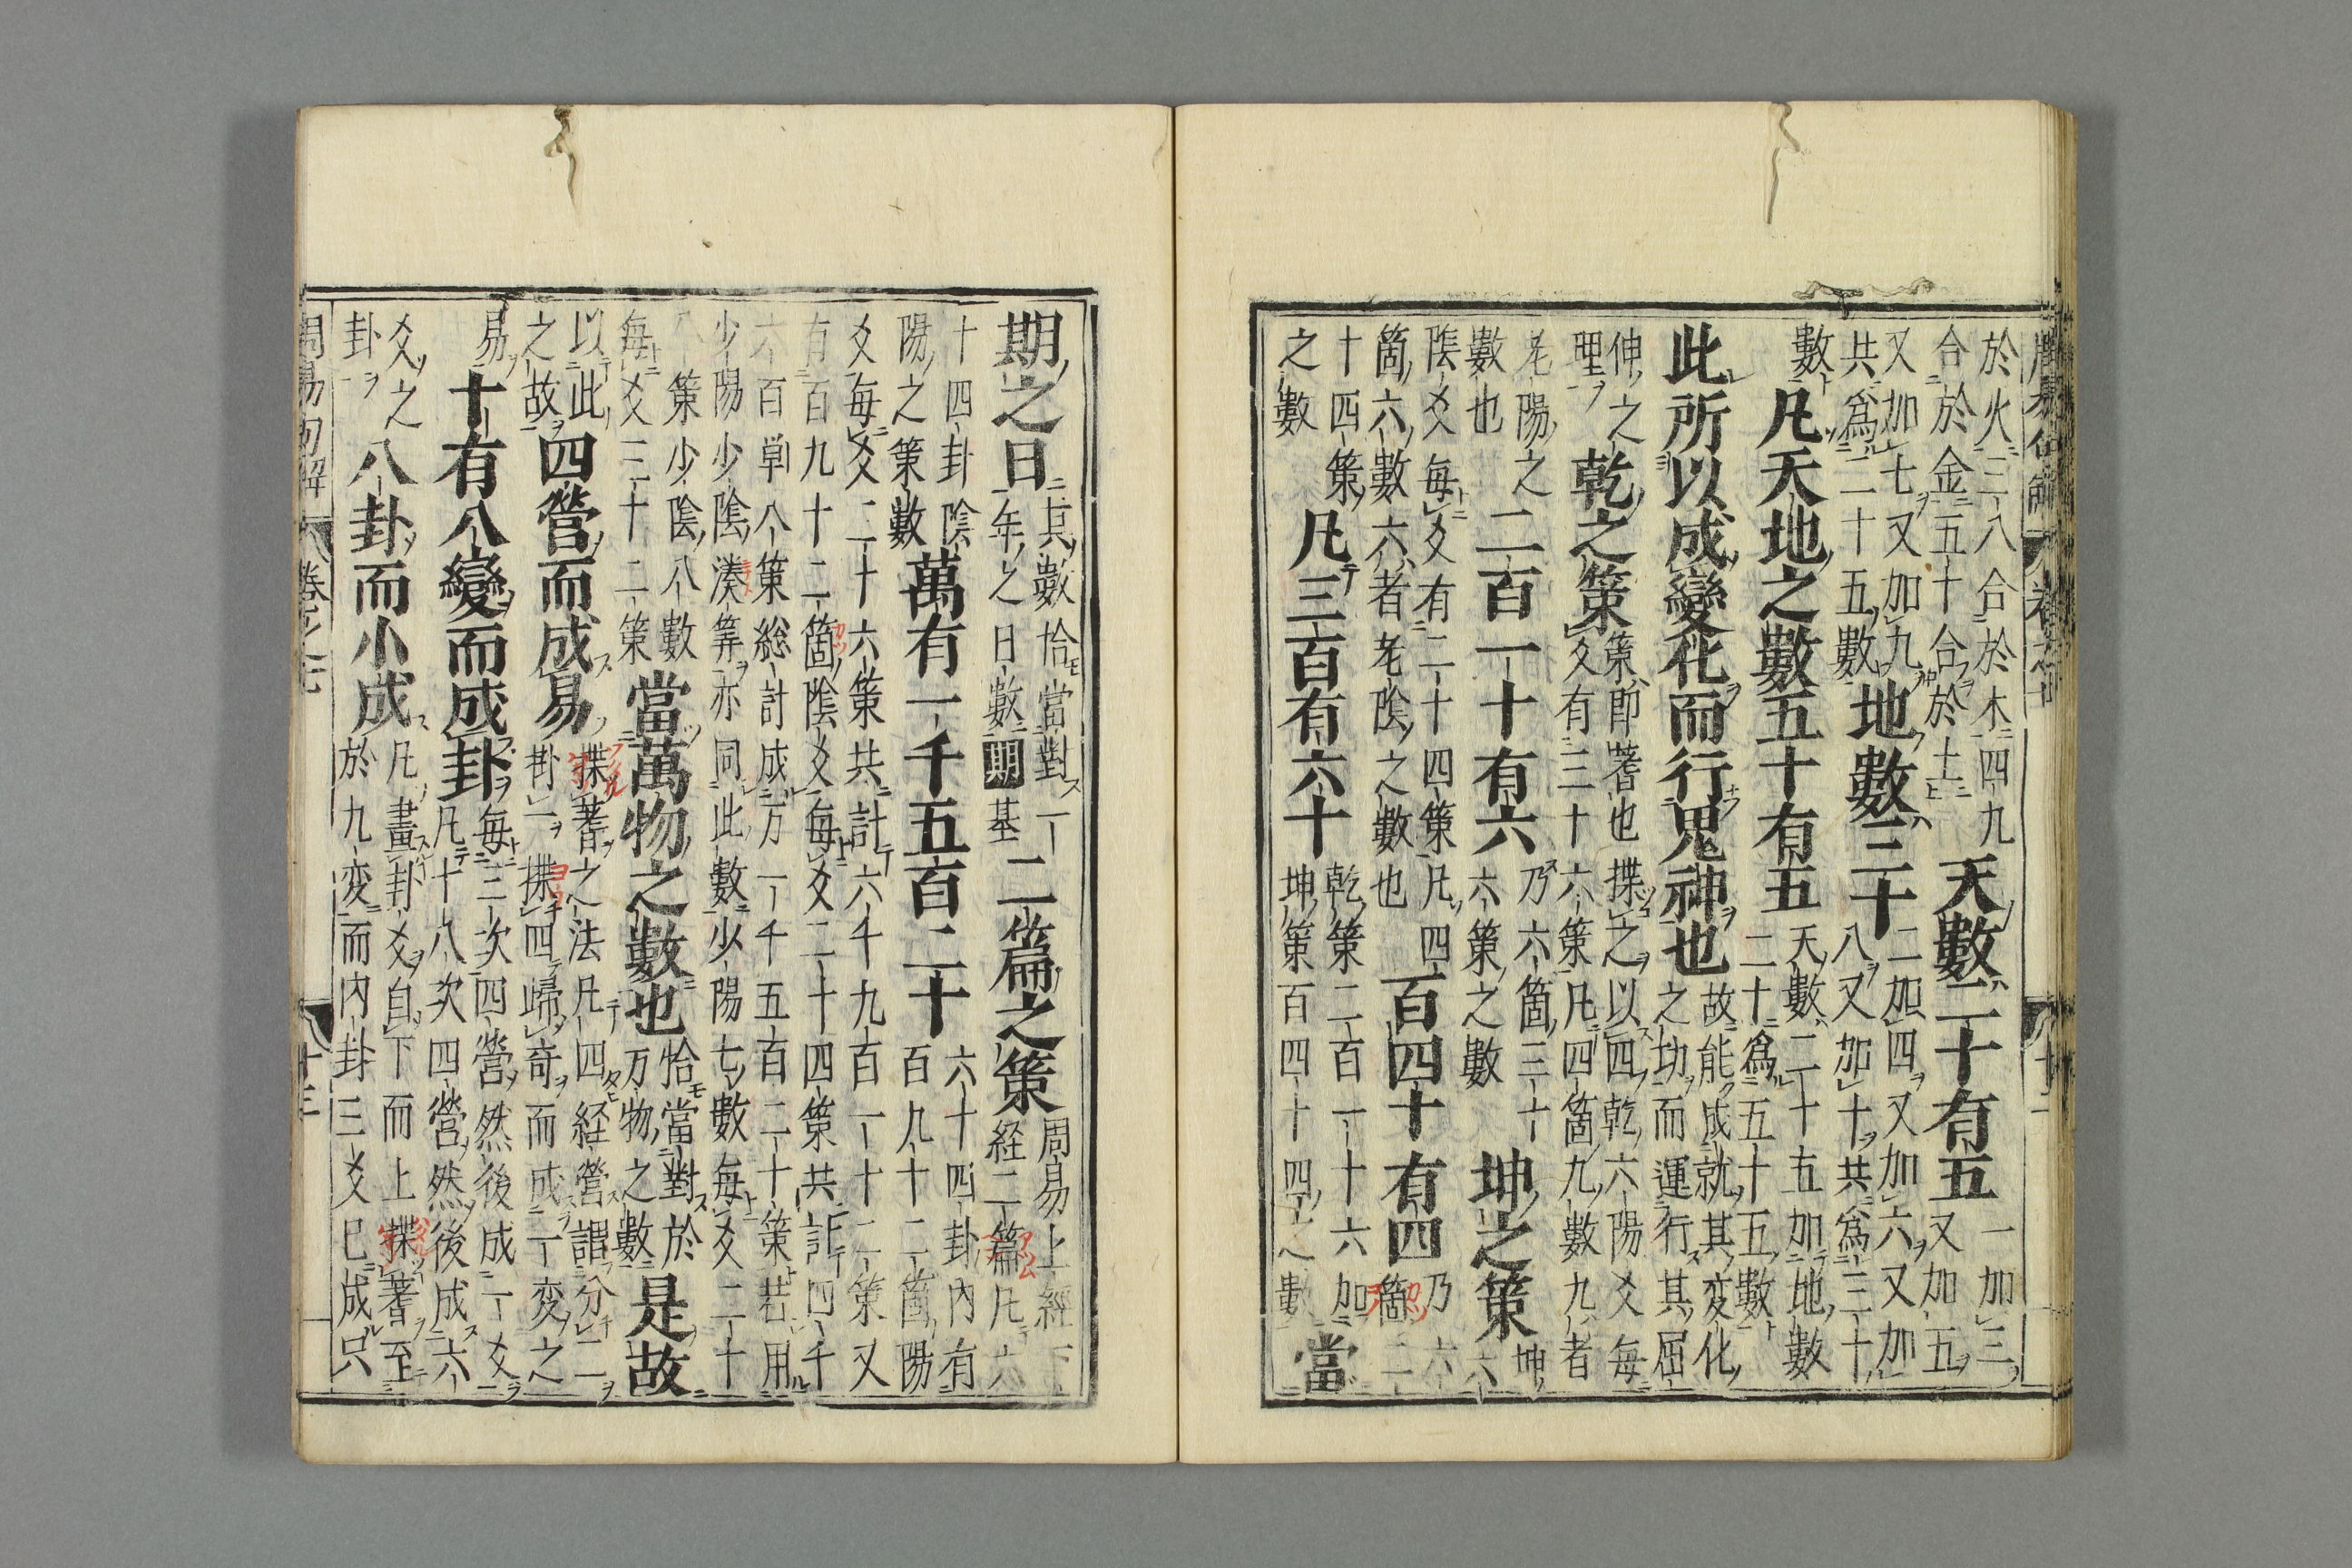 於火三八合於木四九
合於金五十合於土
天數二十有五
一加三
又加五
又加七又加九
共爲二十五數
地數三十
二加四又加六又加
八又加十共爲三十
數
凡天地之數五十有五
天數二十五加地數
二十爲五十五數
此所以成變化而行鬼神也
故能成就其変化
之功而運行其屈
伸之
理
乾之策
策即蓍也揲之以四乾六陽爻每
爻有三十六策凡四箇九數九者
老陽之
數也
二百一十有六
乃六箇三十
六策之數
坤之策
坤
六
陰爻每爻有二十四策凡四
箇六數六者老陰之數也
百四十有四
乃六
箇二
十四策
之數
凡三百有六十
乾策二百一十六加
坤策百四十四之數
當
期之日
其數恰當對一
年之日數期基
二篇之策
周易上經下
経二篇凡六
十四卦陰
陽之策數
萬有一千五百二十
六十四卦內有
百九十二箇陽
爻每爻二十六策共計六千九百一十二策又
有百九十二箇陰爻每爻二十四策共計四千
六百単八策総計成万一千五百二十策若用
少陽少陰湊筭亦同此數少陽七數每爻二十
八策少陰八數
每爻三十二策
當萬物之數也
恰當對於
万物之數
是故
以此
之故
四營而成易
揲蓍之法凡四経營謂分二
掛一揲四歸奇而成一変之
易
十有八變而成卦
每三次四營然後成一爻
凡十八次四營然後成六
爻之
卦
八卦而小成
凡畫卦爻自下而上揲蓍至
於九変而內卦三爻已成只
周易句解 卷之七 十三